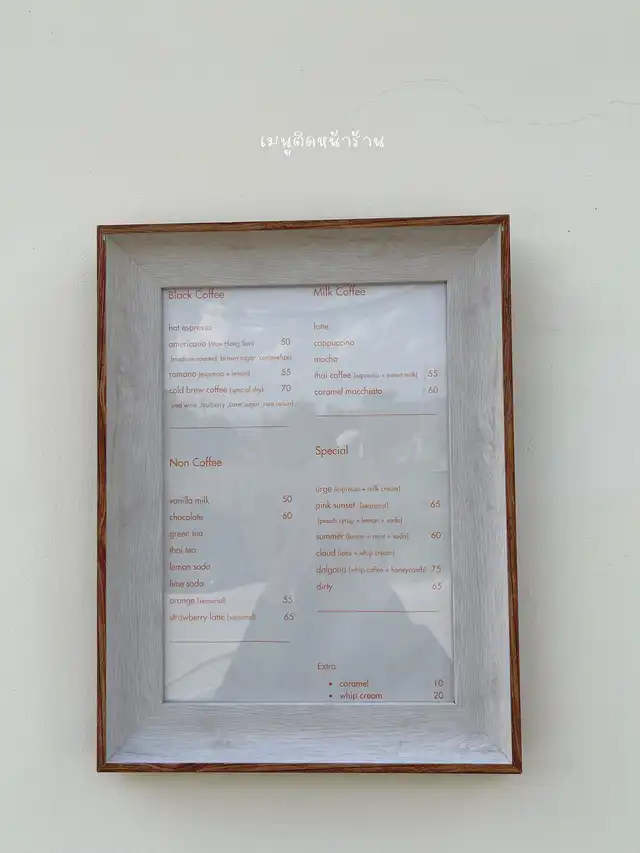 เมนูติดหน้าร้าน
Black Coffee
hot espresso
americano (Mae Hong Son) 50
(medium roasted, brown sugar, caramelize)
romano (espresso + lemon) 55
cold brew coffee (special dry) 70
(red wine, mulberry, cane sugar, raisin)
Milk Coffee
latte
cappuccino
mocha
thai coffee (espresso + sweet milk) 55
caramel macchiato 60
Non Coffee
vanilla milk 50
chocolate 60
green tea
thai tea
lemon soda
lime soda
orange (seasonal) 55
strawberry latte (seasonal) 65
Special
urge (espresso + milk cream)
pink sunset (seasonal) 65
(peach syrup + lemon + soda)
summer (lemon + mint + soda) 60
cloud (latte + whip cream)
dalgona (whip coffee + honeycomb) 75
dirty 65
Extra
• caramel 10
• whip cream 20